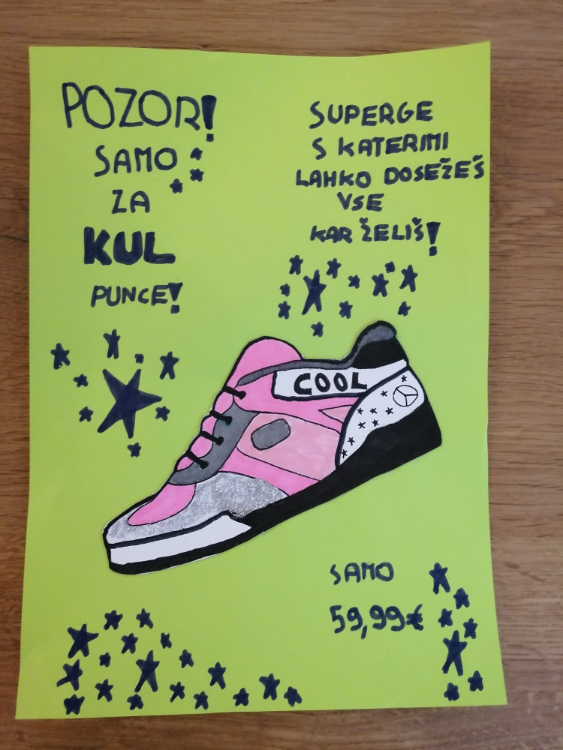 POZOR!
SAMO
ZA
KUL
PUNCE!
SUPERGE
S KATERIMI
LAHKO DOSEŽEŠ
VSE
KAR ŽELIŠ!
COOL
SAMO
59,99€